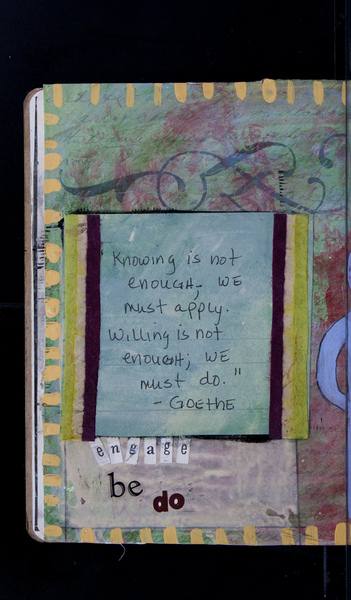 "Knowing is not
enough; we
must apply.
Willing is not
enough; we
must do."
- Goethe
engage
be
do